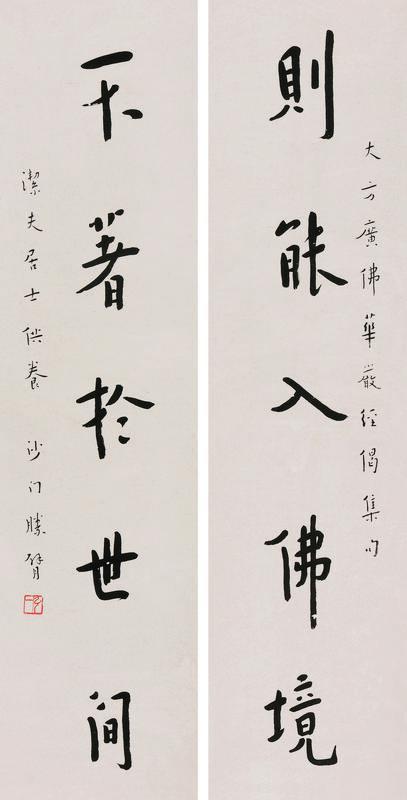 大方廣佛華嚴經偈集句
則能入佛境
不著於世間
潔夫居士供養 沙门勝臂